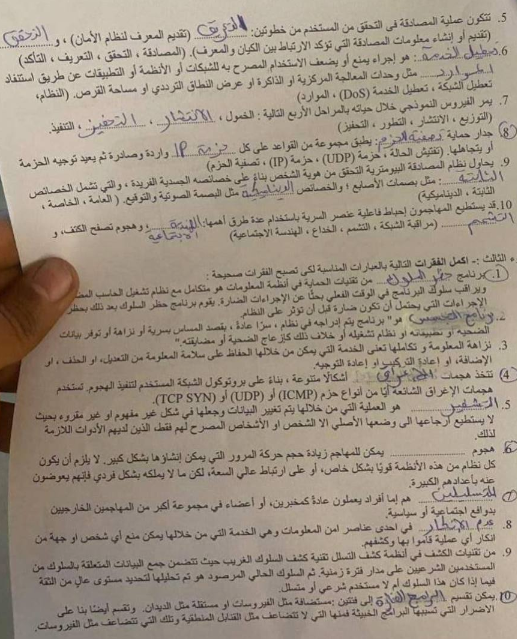 5. تتكون عملية المصادقة في التحقق من المستخدم من خطوتين: التعريف (تقديم المعرف لنظام الأمان) ، و التحقق
(تقديم أو إنشاء معلومات المصادقة التي تؤكد الارتباط بين الكيان والمعرف). (المصادقة ، التحقق ، التعريف ، التأكد)
6. تعطيل الخدمة : هو إجراء يمنع أو يضعف الاستخدام المصرح به للشبكات أو الأنظمة أو التطبيقات عن طريق استنفاد
الموارد مثل وحدات المعالجة المركزية او الذاكرة او عرض النطاق الترددي او مساحة القرص. (النظام،
تعطيل الشبكة ، تعطيل الخدمة (DoS) ، الموارد)
7. يمر الفيروس النموذجي خلال حياته بالمراحل الأربع التالية : الخمول ، الانتشار ، التحفيز ، التنفيذ
(التوزيع ، الانتشار ، التطور ، التحفيز)
8 جدار حماية تصفية الحزم: يطبق مجموعة من القواعد على كل حزمة IP واردة وصادرة ثم يعيد توجيه الحزمة
أو يتجاهلها. (تفتيش الحالة ، حزمة (UDP) ، حزمة (IP) ، تصفية الحزم)
9. يحاول نظام المصادقة البيومترية التحقق من هوية الشخص بناءً على خصائصه الجسدية الفريدة ، والتي تشمل الخصائص
الثابتة : مثل بصمات الأصابع ؛ والخصائص الديناميكية مثل البصمة الصوتية والتوقيع. ( العامة ، الخاصة ،
الثابتة ، الديناميكية)
10. قد يستطيع المهاجمون إحباط فاعلية عنصر السرية باستخدام عدة طرق أهمها: الهندسة الاجتماعية ؛ وهجوم تصفح الكتف، و
التشمم (مراقبة الشبكة ، التشمم ، الخداع ، الهندسة الاجتماعية)
الثالث :- اكمل الفقرات التالية بالعبارات المناسبة لكي تصبح الفقرات صحيحة :
1. برنامج حظر السلوك من تقنيات الحماية في أنظمة المعلومات هو متكامل مع نظام تشغيل الحاسب
ويراقب سلوك البرنامج في الوقت الفعلي بحثًا عن الإجراءات الضارة. يقوم برنامج حظر السلوك بعد ذلك بحظر
الإجراءات التي يحتمل أن تكون ضارة قبل أن تؤثر على النظام.
2. برنامج هو" برنامج يتم إدراجه في نظام ، سرًا عادةً ، بقصد المساس بسرية أو نزاهة أو توفر بيانات
الضحية أو تطبيقاته أو نظام تشغيله أو خلاف ذلك كإزعاج الضحية أو مضايقته."
3. نزاهة المعلومة و تكاملها تعنى الخدمة التي يمكن من خلالها الحفاظ على سلامة المعلومة من التعديل، او الحذف ، او
الإضافة، او إعادة التركيب او إعادة التوجيه.
4 تتخذ هجمات الاغراق أشكالًا متنوعة ، بناءً على بروتوكول الشبكة المستخدم لتنفيذ الهجوم. تستخدم
هجمات الإغراق الشائعة أيًا من أنواع حزم (ICMP) أو (UDP) أو (TCP SYN).
5. التشفير هو العملية التي من خلالها يتم تغيير البيانات وجعلها في شكل غير مفهوم او غير مقروء بحيث
لا يستطيع أرجاعها الى وضعها الأصلي الا الشخص او الأشخاص المصرح لهم فقط، الذين لديهم الأدوات اللازمة
لذلك.
6 هجوم ............ يمكن للمهاجم زيادة حجم حركة المرور التي يمكن إنشاؤها بشكل كبير. لا يلزم أن يكون
كل نظام من هذه الأنظمة قويًا بشكل خاص، أو على ارتباط عالي السعة، لكن ما لا يملكه بشكل فردي فإنهم يعوضون
عنه بأعدادهم الكبيرة.
7 المتسللين هم إما أفراد يعملون عادةً كمخبرين، أو أعضاء في مجموعة أكبر من المهاجمين الخارجيين
بدوافع اجتماعية أو سياسية.
8. عدم الإنكار في احدى عناصر امن المعلومات وهي الخدمة التي من خلالها يمكن منع أي شخص او جهة من
انكار أي عملية قاموا بها وكشفهم.
9. من تقنيات الكشف في أنظمة كشف التسلل تقنية كشف السلوك الغريب حيث تتضمن جمع البيانات المتعلقة بالسلوك من
المستخدمين الشرعيين على مدار فترة زمنية. ثم السلوك الحالي المرصود هو تم تحليلها لتحديد مستوى عالٍ من الثقة
فيما إذا كان هذا السلوك أم لا مستخدم شرعي أو متسلل.
10. يمكن تقسيم البرامج الضارة إلى فئتين :مستضافة مثل الفيروسات او مستقلة مثل الديدان. وتقسم أيضًا بنا على
الاضرار التي تسببها البرامج الخبيثة فمنها التي لا تتضاعف مثل القنابل المنطقية وتلك التي تتضاعف مثل الفيروسات.